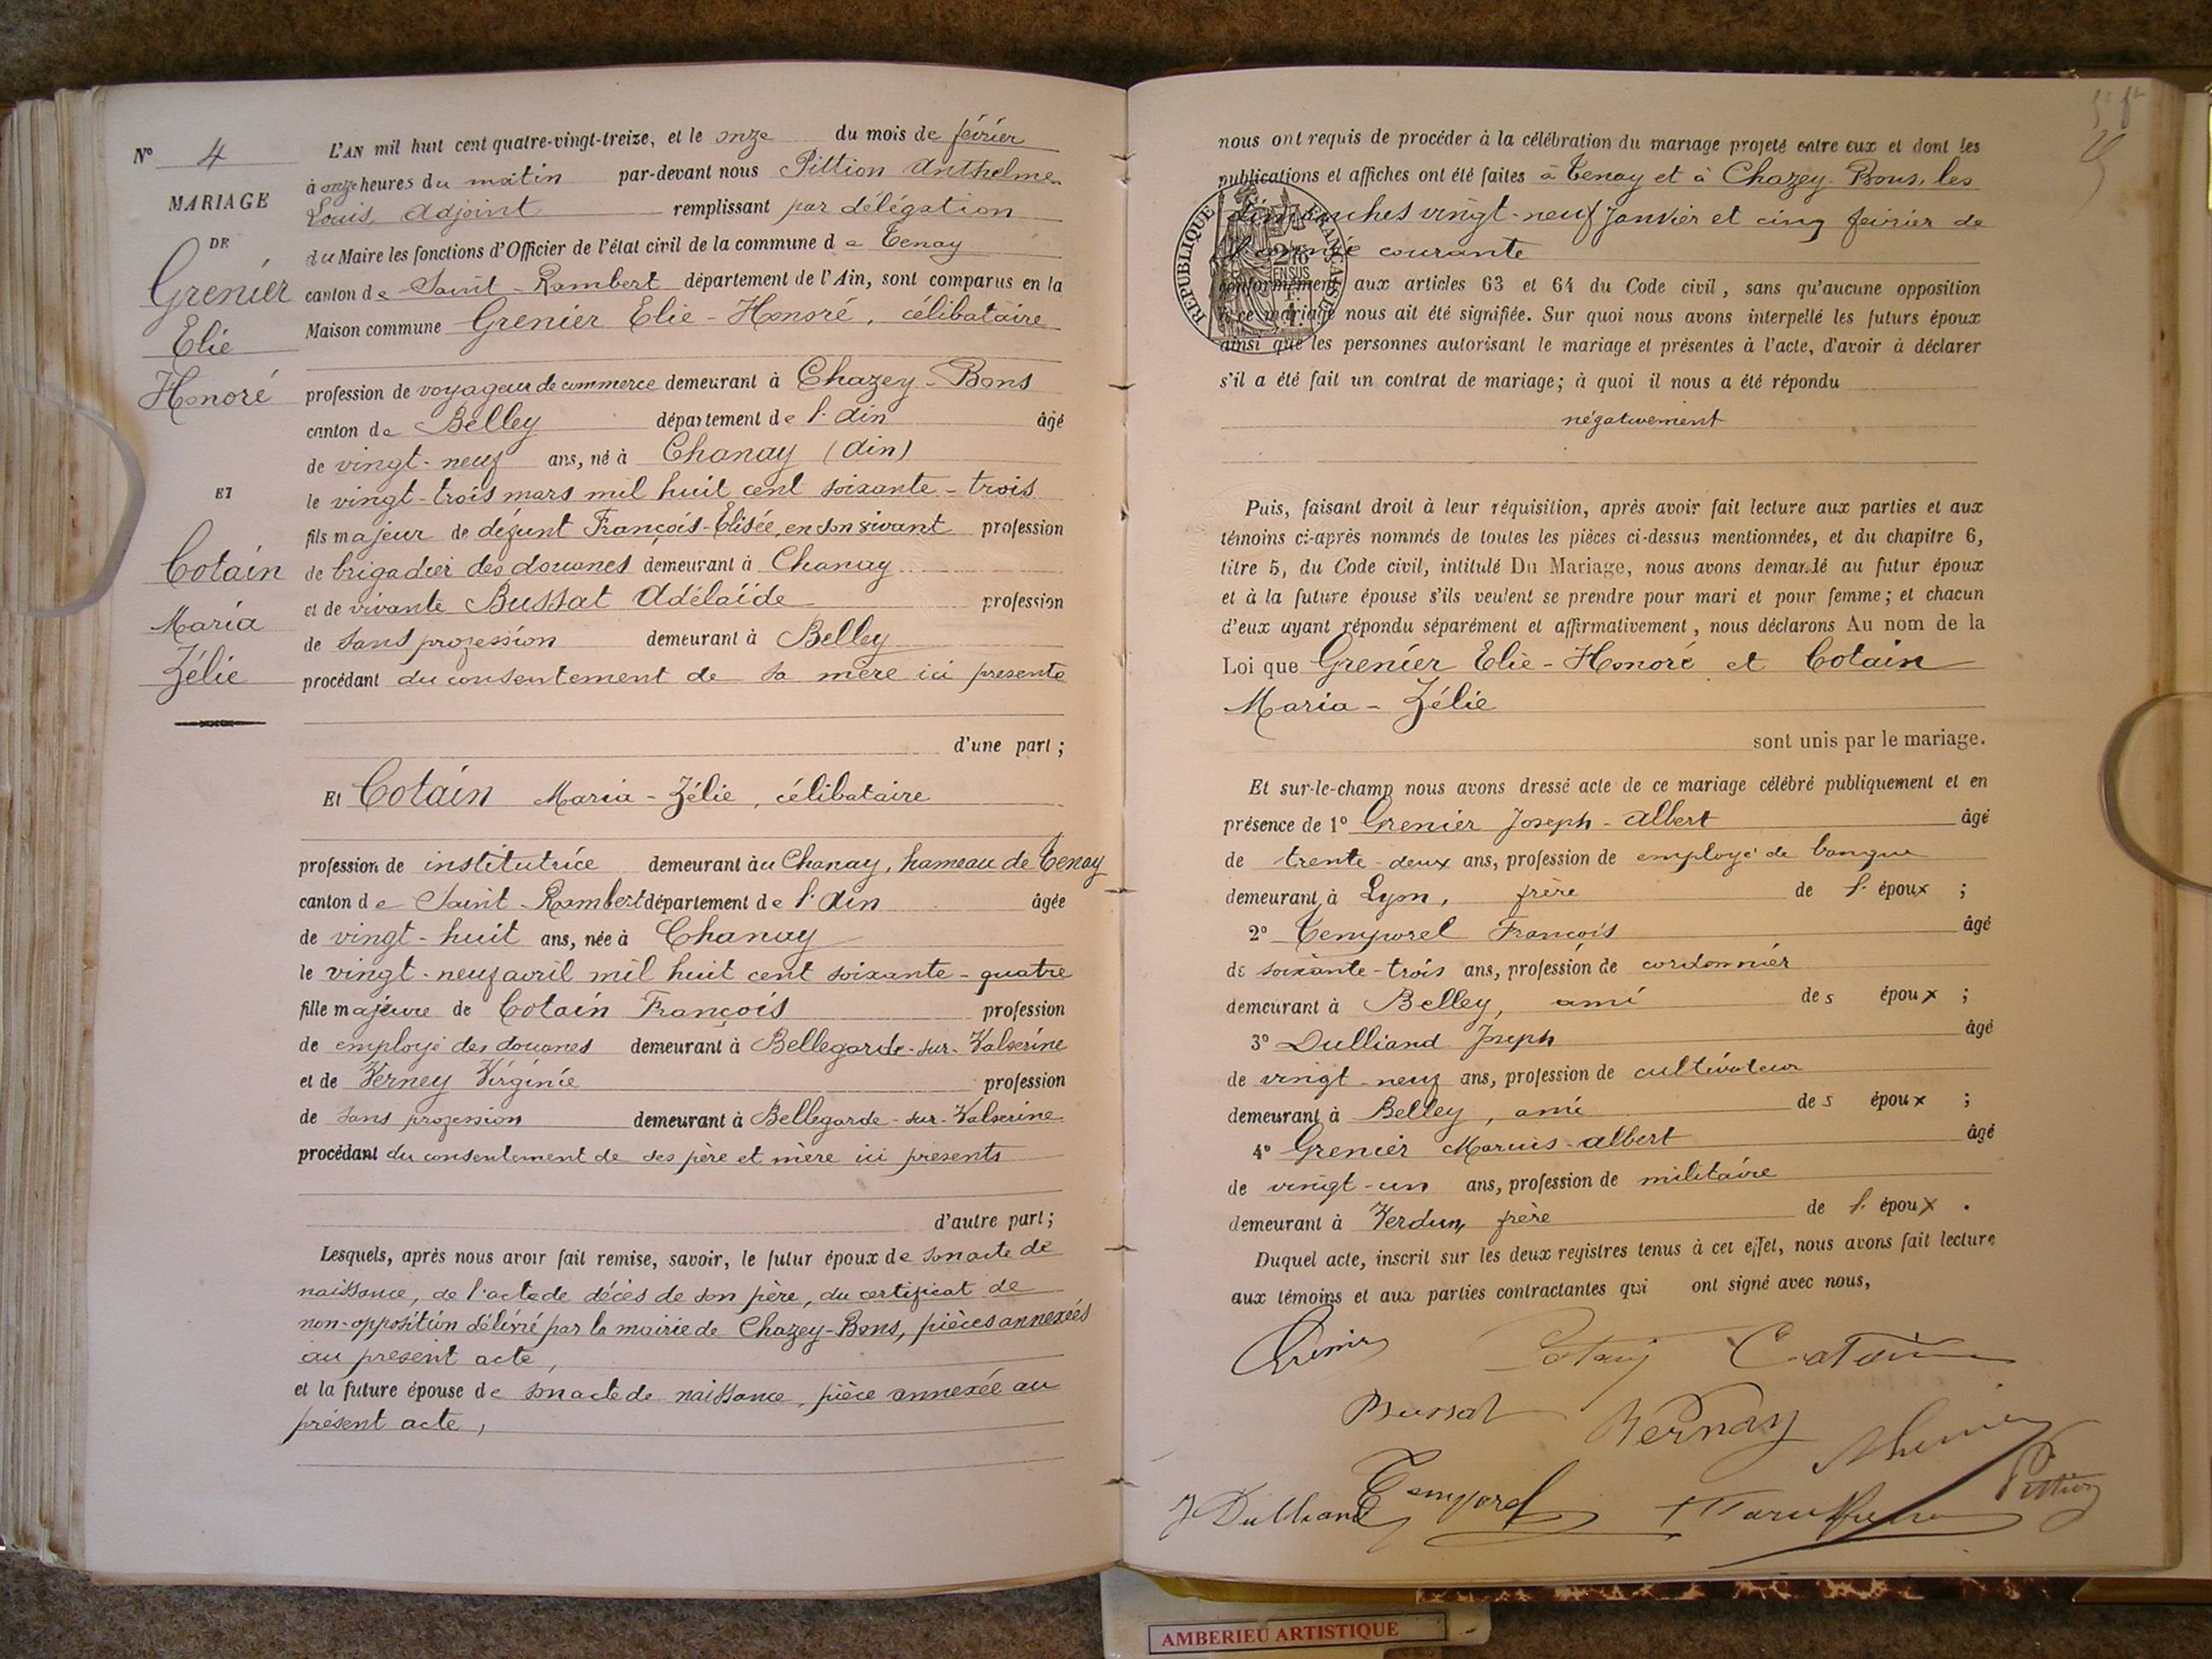 N° 4
MARIAGE
DE
Grenier
Elie
Honoré
ET
Cotain
Maria
Zélie
L'AN mil huit cent quatre-vingt-treize, et le onze du mois de février
à onze heures du matin par-devant nous Pittion Anthelme
Louis, Adjoint remplissant par délégation
du Maire les fonctions d'Officier de l'état civil de la commune de Tenay
canton de Saint-Rambert département de l'Ain, sont comparus en la
Maison commune Grenier Elie-Honoré, célibataire
profession de voyageur de commerce demeurant à Chazey-Bons
canton de Belley département de l'Ain âgé
de vingt-neuf ans, né à Chanay (Ain)
le vingt-trois mars mil huit cent soixante-trois
fils majeur de défunt François-Elisée, en son vivant profession
de brigadier des douanes demeurant à Chanay
et de vivante Bussat Adélaïde profession
de sans profession demeurant à Belley
procédant du consentement de sa mère ici présente
d'une part ;
Et Cotain Maria-Zélie, célibataire
profession de institutrice demeurant àu Chanay, hameau de Tenay
canton de Saint-Rambert département de l'Ain âgée
de vingt-huit ans, née à Chanay
le vingt-neuf avril mil huit cent soixante-quatre
fille majeure de Cotain François profession
de employé des douanes demeurant à Bellegarde-sur-Valserine
et de Verney Virginie profession
de sans profession demeurant à Bellegarde-sur-Valserine
procédant du consentement de ses père et mère ici présents
d'autre part ;
Lesquels, après nous avoir fait remise, savoir, le futur époux de son acte de
naissance, de l'acte de décès de son père, du certificat de
non-opposition délivré par la mairie de Chazey-Bons, pièces annexées
au présent acte,
et la future épouse de son acte de naissance, pièce annexée au
présent acte,
nous ont requis de procéder à la célébration du mariage projeté entre eux et dont les
publications et affiches ont été faites à Tenay et à Chazey-Bons, les
dimanches vingt-neuf janvier et cinq février de
l'année courante
conformément aux articles 63 et 64 du Code civil, sans qu'aucune opposition
à ce mariage nous ait été signifiée. Sur quoi nous avons interpellé les futurs époux
ainsi que les personnes autorisant le mariage et présentes à l'acte, d'avoir à déclarer
s'il a été fait un contrat de mariage ; à quoi il nous a été répondu
négativement
REPUBLIQUE FRANÇAISE
Puis, faisant droit à leur réquisition, après avoir fait lecture aux parties et aux
témoins ci-après nommés de toutes les pièces ci-dessus mentionnées, et du chapitre 6,
titre 5, du Code civil, intitulé Du Mariage, nous avons demandé au futur époux
et à la future épouse s'ils veulent se prendre pour mari et pour femme ; et chacun
d'eux ayant répondu séparément et affirmativement, nous déclarons Au nom de la
Loi que Grenier Elie-Honoré et Cotain
Maria-Zélie
sont unis par le mariage.
Et sur-le-champ nous avons dressé acte de ce mariage célébré publiquement et en
présence de 1° Grenier Joseph-Albert âgé
de trente-deux ans, profession de employé de banque
demeurant à Lyon, frère de l'époux ;
2° Temporel François âgé
de soixante-trois ans, profession de cordonnier
demeurant à Belley, ami des époux ;
3° Dulliand Joseph âgé
de vingt-neuf ans, profession de cultivateur
demeurant à Belley, ami des époux ;
4° Grenier Marius-Albert âgé
de vingt-un ans, profession de militaire
demeurant à Verdun, frère de l'époux.
Duquel acte, inscrit sur les deux registres tenus à cet effet, nous avons fait lecture
aux témoins et aux parties contractantes qui ont signé avec nous,
Grenier Cotain Cotain
Bussat Vernay
J Dulliand Temporel Pittion
AMBERIEU ARTISTIQUE